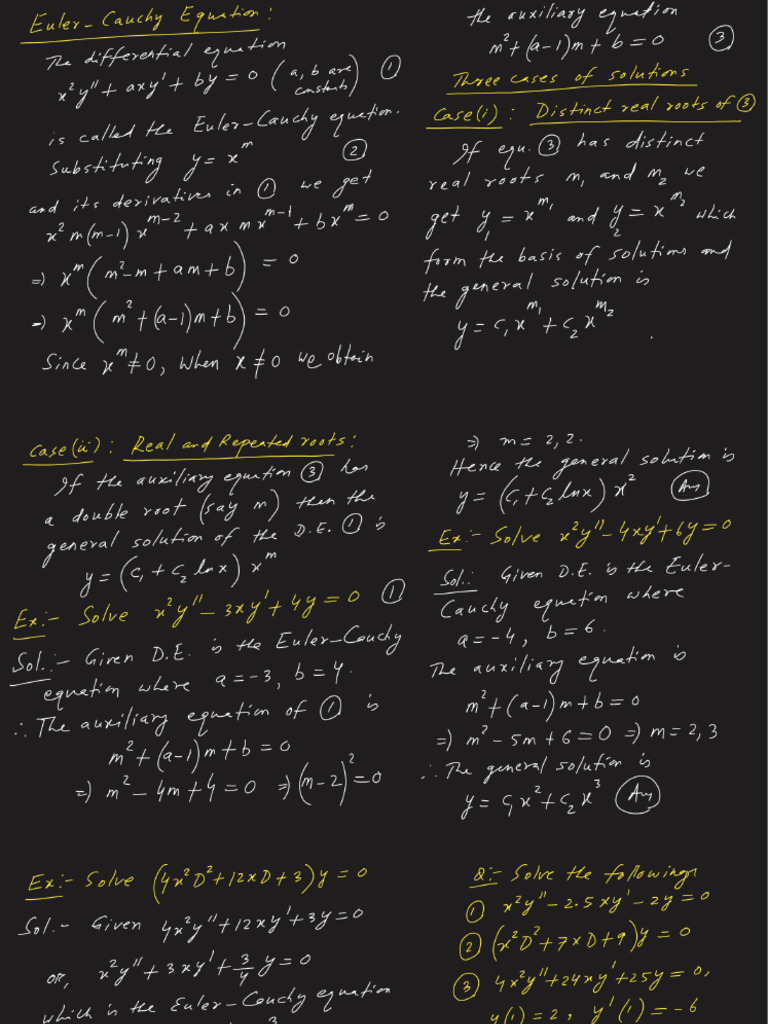 Euler-Cauchy Equation:
The differential equation
x²y" + axy' + by = 0 (a, b are constants) ①
is called the Euler-Cauchy equation.
Substituting y = x^m ②
and its derivatives in ① we get
x² m(m-1) x^(m-2) + ax m x^(m-1) + b x^m = 0
=) x^m (m² - m + am + b) = 0
=) x^m (m² + (a-1)m + b) = 0
Since x^m ≠ 0, when x ≠ 0 we obtain
the auxiliary equation
m² + (a-1)m + b = 0 ③
Three cases of solutions
Case(i): Distinct real roots of ③
If equ. ③ has distinct
real roots m₁ and m₂ we
get y₁ = x^m₁ and y₂ = x^m₂ which
form the basis of solutions and
the general solution is
y = c₁x^m₁ + c₂x^m₂.
Case(ii): Real and Repeated roots:
If the auxiliary equation ③ has
a double root (say m) then the
general solution of the D.E. ① is
y = (c₁ + c₂ lnx) x^m
Ex:- Solve x²y" - 3xy' + 4y = 0 ①
Sol.:- Given D.E. is the Euler-Cauchy
equation where a = -3, b = 4.
∴ The auxiliary equation of ① is
m² + (a-1)m + b = 0
=) m² - 4m + 4 = 0 =) (m-2)² = 0
=) m = 2, 2.
Hence the general solution is
y = (c₁ + c₂ lnx) x² (Ans)
Ex:- Solve x²y" - 4xy' + 6y = 0
Sol.: Given D.E. is the Euler-
Cauchy equation where
a = -4, b = 6.
The auxiliary equation is
m² + (a-1)m + b = 0
=) m² - 5m + 6 = 0 =) m = 2, 3
∴ The general solution is
y = c₁x² + c₂x³ (Ans)
Ex:- Solve (4x²D² + 12xD + 3)y = 0
Sol.- Given 4x²y" + 12xy' + 3y = 0
or, x²y" + 3xy' + 3/4 y = 0
which is the Euler-Cauchy equation
Q:- Solve the followings
① x²y" - 2.5xy' - 2y = 0
② (x²D² + 7xD + 9)y = 0
③ 4x²y" + 24xy' + 25y = 0,
y(1) = 2, y'(1) = -6